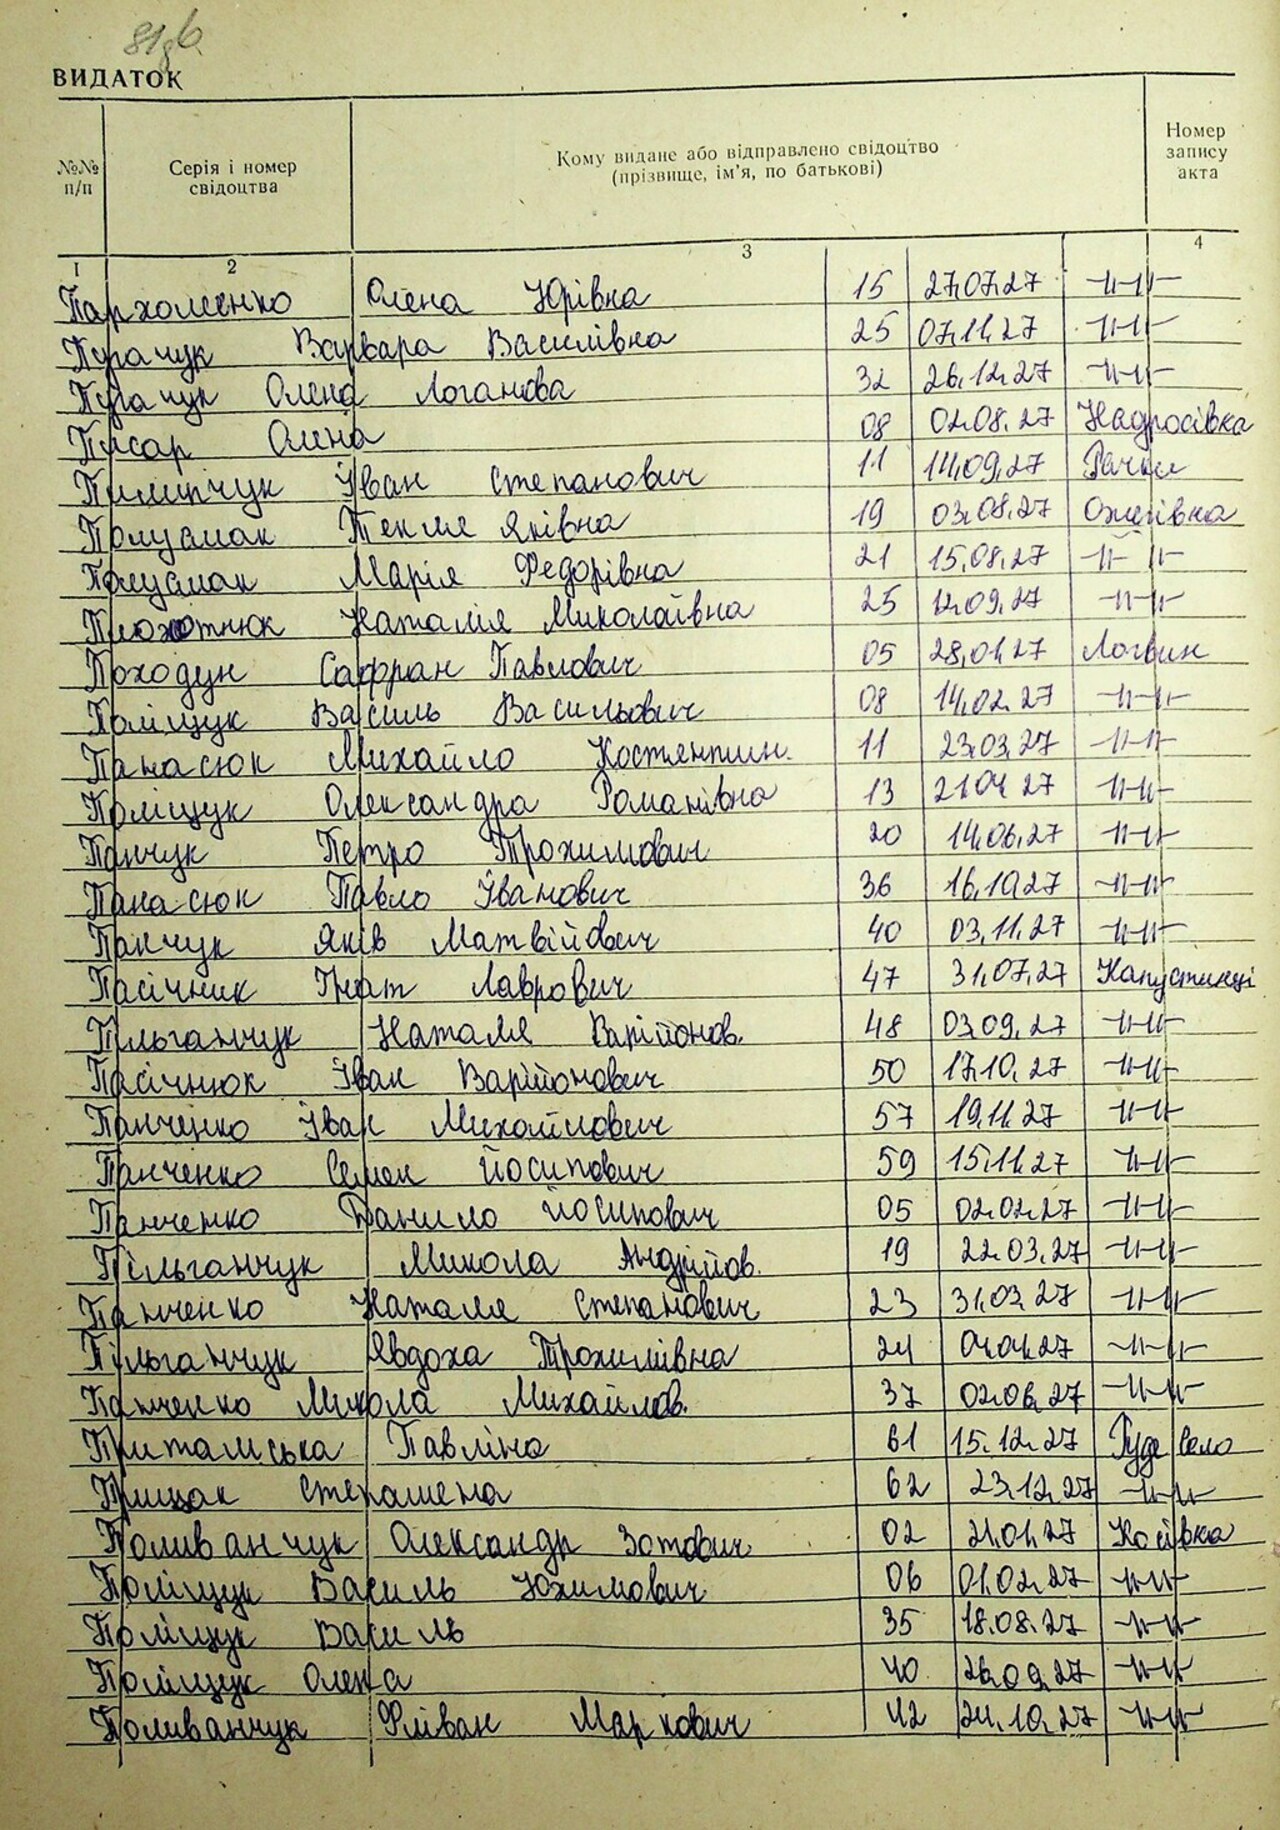 81зв
ВИДАТОК
№№ п/п
Серія і номер свідоцтва
Кому видане або відправлено свідоцтво (прізвище, ім'я, по батькові)
Номер запису акта
1 2 3 4
Пархоменко Олена Юрівна 15 27.07.27 -"-"-
Пугачук Варвара Василівна 25 07.11.27 -"-"-
Пугачук Олена Логанова 32 26.12.27 -"-"-
Писар Олена 08 02.08.27 Надросівка
Пилипчук Іван Степанович 11 14.09.27 Рачки
Полусмак Текля Яківна 19 03.08.27 Ожегівка
Полусмак Марія Федорівна 21 15.08.27 -"-"-
Плохотнюк Наталія Миколаївна 25 12.09.27 -"-"-
Походун Сафран Павлович 05 28.01.27 Логвин
Поліщук Василь Васильович 08 14.02.27 -"-"-
Панасюк Михайло Костянтин. 11 23.03.27 -"-"-
Поліщук Олександра Романівна 13 21.04.27 -"-"-
Панчук Петро Трохимович 20 14.06.27 -"-"-
Панасюк Павло Іванович 36 16.10.27 -"-"-
Панчук Яків Матвійович 40 03.11.27 -"-"-
Пасічник Гнат Лаврович 47 31.07.27 Капустинці
Пільганчук Наталя Варійонов. 48 03.09.27 -"-"-
Пасічнюк Іван Варійонович 50 17.10.27 -"-"-
Панченко Іван Михайлович 57 19.11.27 -"-"-
Панченко Семен Йосипович 59 15.11.27 -"-"-
Панченко Данило Йосипович 05 02.02.27 -"-"-
Пільганчук Микола Андрійов. 19 22.03.27 -"-"-
Панченко Наталя Степанович 23 31.03.27 -"-"-
Пільганчук Явдоха Трохимівна 24 04.04.27 -"-"-
Панченко Микола Михайлов. 37 02.06.27 -"-"-
Приталська Павліна 61 15.12.27 Руде село
Прищак Степанена 62 23.12.27 -"-"-
Поливанчук Олександр Зотович 02 21.01.27 Косівка
Поліщук Василь Юхимович 06 01.02.27 -"-"-
Поліщук Василь 35 18.08.27 -"-"-
Поліщук Олена 40 26.09.27 -"-"-
Поливанчук Філван Маркович 42 24.10.27 -"-"-